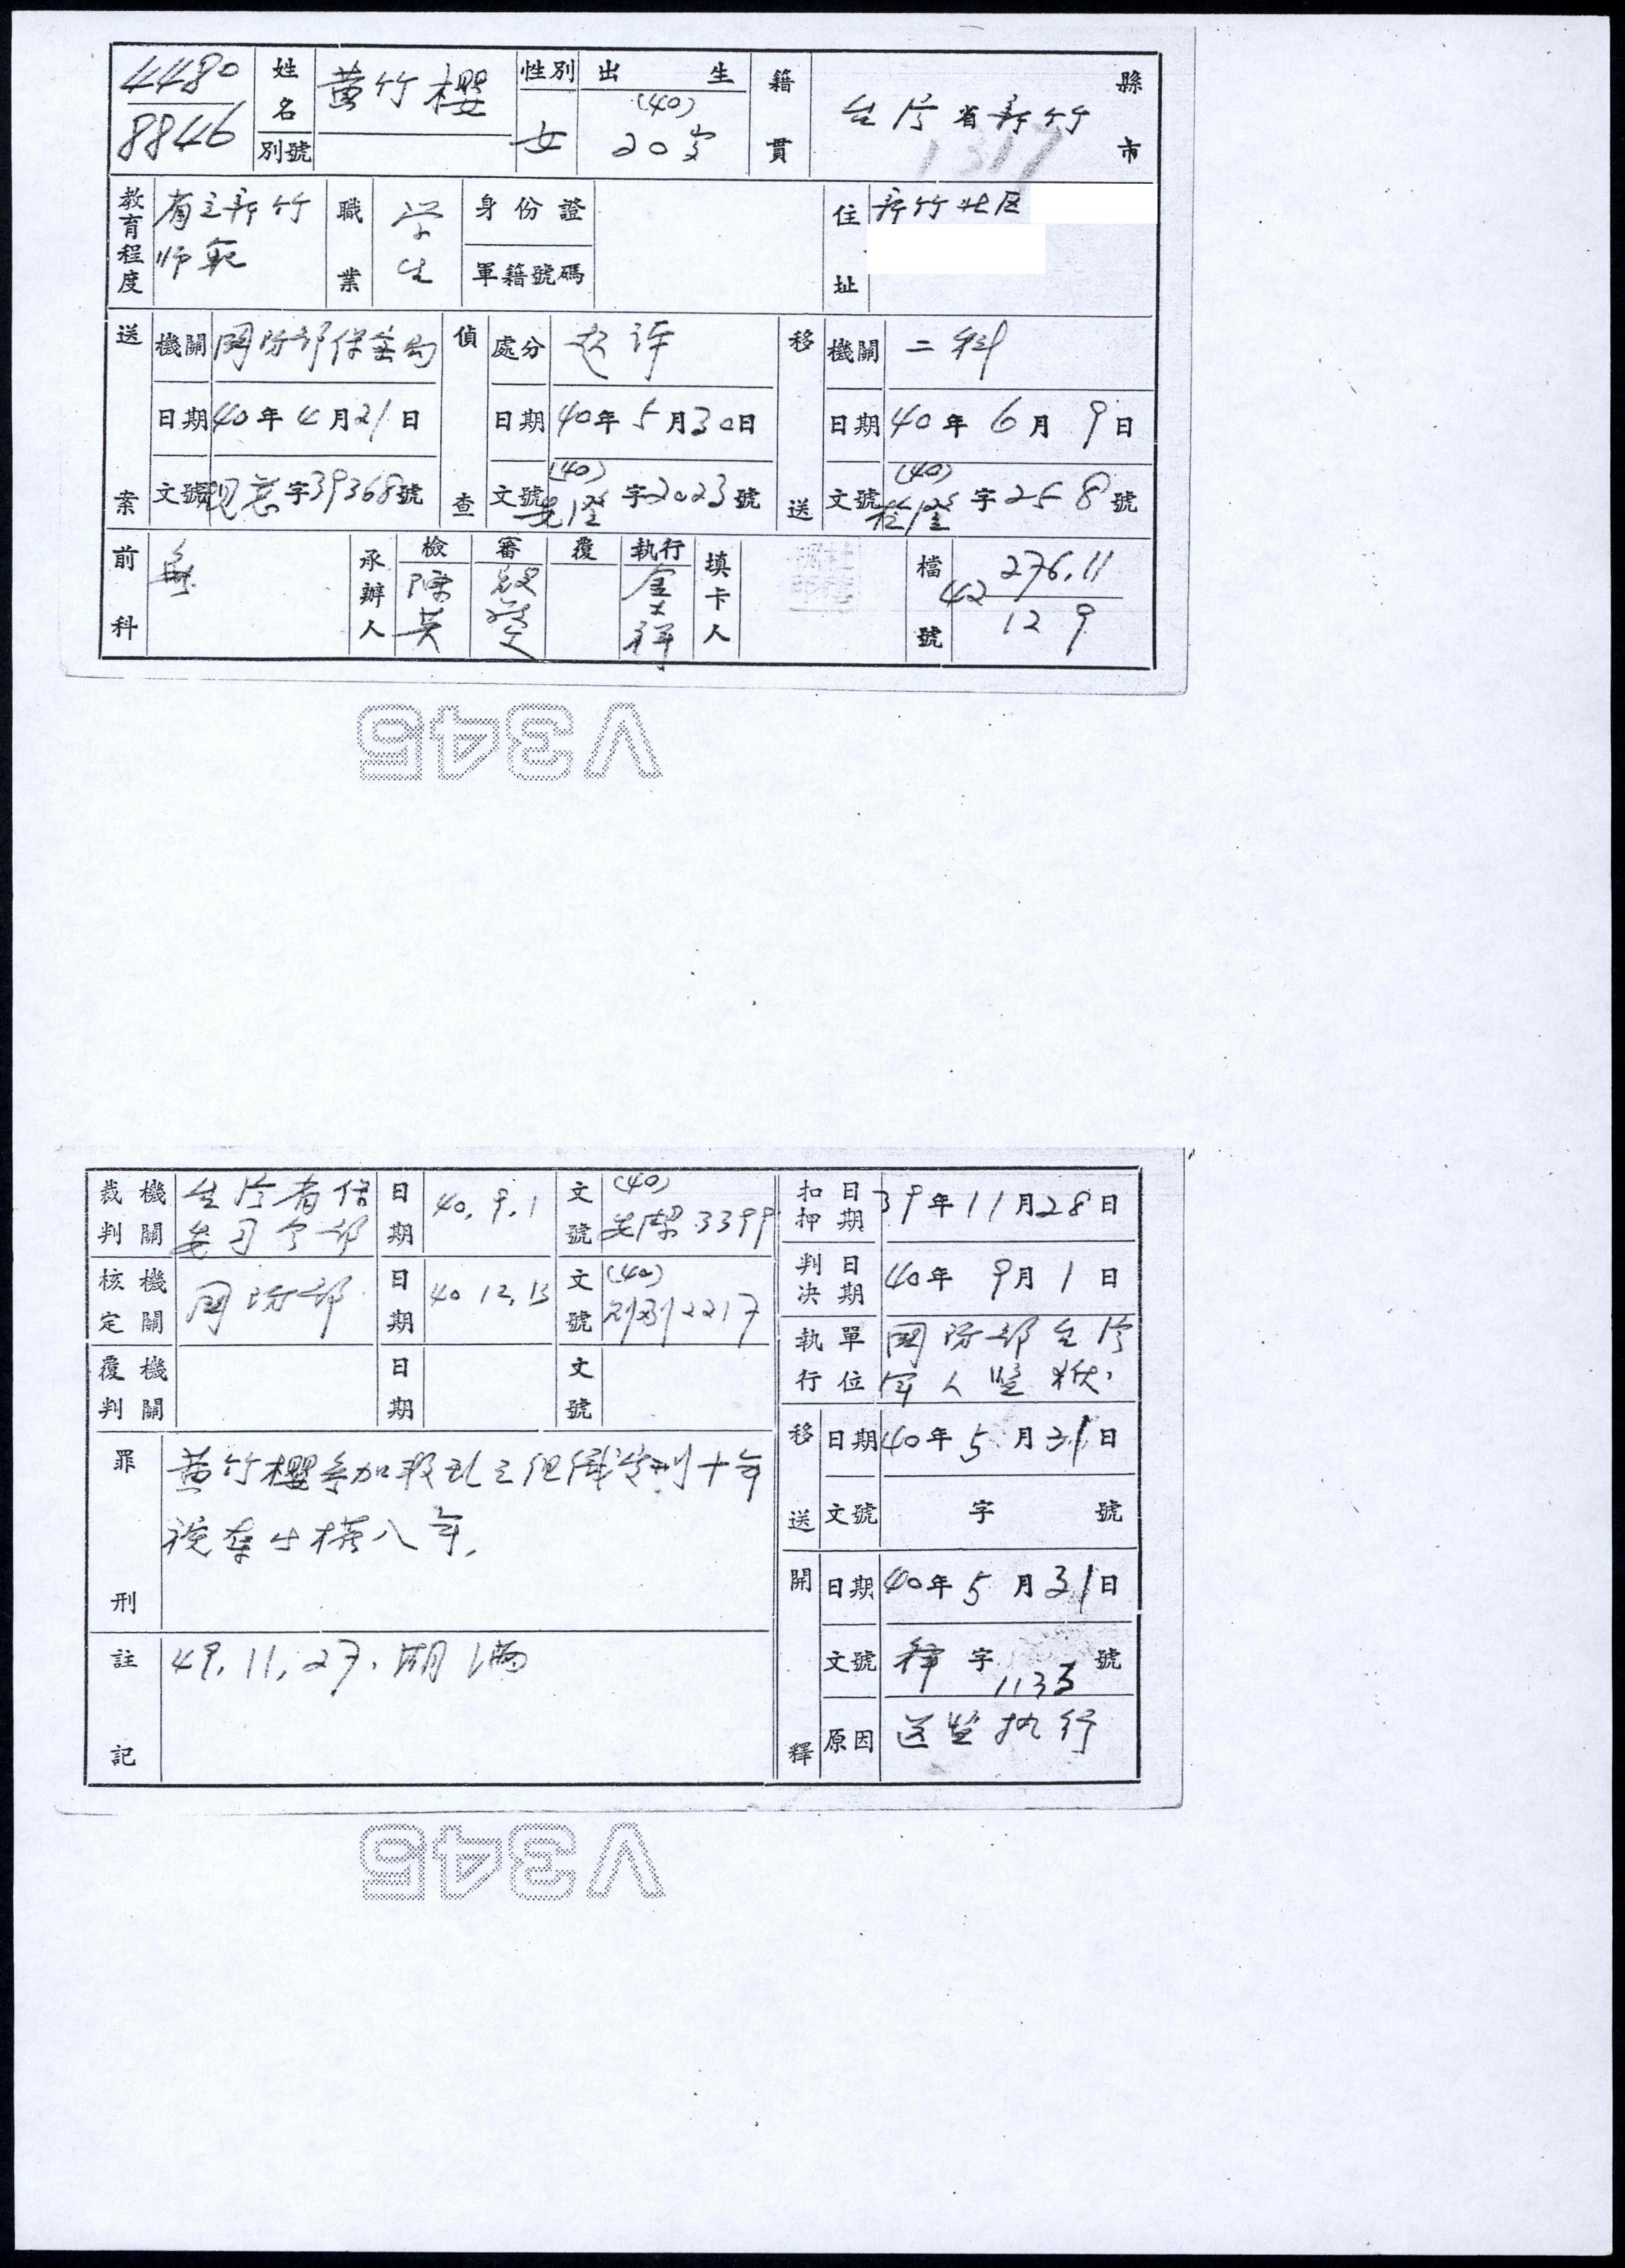 4480
8846
姓名 黃竹櫻
別號
性別 女
出生 (40) 20岁
籍貫 台灣省新竹 縣市
1317
教育程度 省立新竹师範
職業 学生
身份證
軍籍號碼
住址 新竹北区
送案 機關 國防部保密局
日期 40年4月21日
文號 字39368號
偵查 處分 起訴
日期 40年5月30日
文號 (40) 字2023號
移送 機關 二科
日期 40年6月9日
文號 (40) 字258號
前科 無
承辦人 檢 陳英
審 殷敬文
覆
執行
填卡人
檔號 42 276.11
129
V345
裁判機關 台灣省保安司令部
日期 40.9.1
文號 (40) 安潔3399
核定機關 國防部
日期 40 12,13
文號 (40) 2217
覆判機關
日期
文號
罪刑 黃竹櫻參加叛乱之組織處刑十年
褫奪公權八年.
註記 49.11.27.期滿
扣押日期 39年11月28日
判決日期 40年9月1日
執行單位 國防部台灣
军人監獄.
移送 日期 40年5月31日
文號 字 號
開釋 日期 40年5月31日
文號 釋字1133號
原因 送监执行
V345